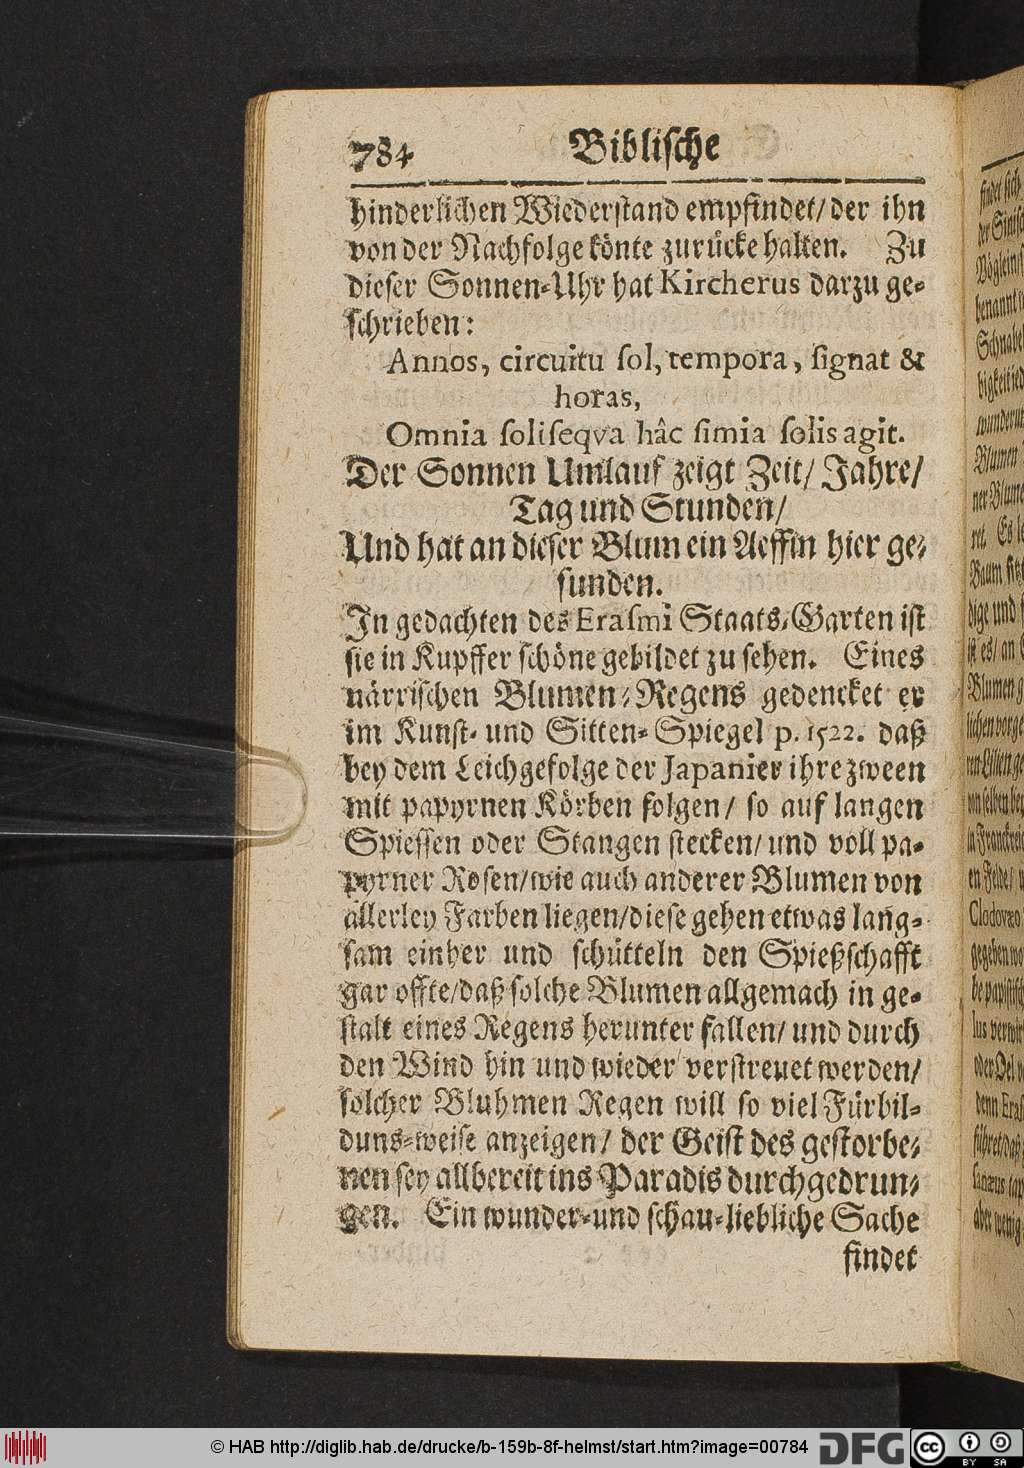 784 Biblische
hinderlichen Wiederstand empfindet/ der ihn
von der Nachfolge könte zurücke halten. Zu
dieser Sonnen-Uhr hat Kircherus darzu ge-
schrieben:
Annos, circuitu sol, tempora, signat &
horas,
Omnia solisequa hâc simia solis agit.
Der Sonnen Umlauf zeigt Zeit/ Jahre/
Tag und Stunden/
Und hat an dieser Blum ein Aeffin hier ge-
funden.
In gedachten des Erasmi Staats-Garten ist
sie in Kupffer schöne gebildet zu sehen. Eines
närrischen Blumen-Regens gedencket er
im Kunst- und Sitten-Spiegel p. 1522. daß
bey dem Leichgefolge der Japanier ihre zween
mit papyrnen Körben folgen/ so auf langen
Spiessen oder Stangen stecken/ und voll pa-
pyrner Rosen/ wie auch anderer Blumen von
allerley Farben liegen/ diese gehen etwas lang-
sam einher und schütteln den Spießschafft
gar offte/ daß solche Blumen allgemach in ge-
stalt eines Regens herunter fallen/ und durch
den Wind hin und wieder verstreuet werden/
solcher Bluhmen Regen will so viel Fürbil-
duns-weise anzeigen/ der Geist des gestorbe-
nen sey allbereit ins Paradis durchgedrun-
gen. Ein wunder-und schau-liebliche Sache
findet
© HAB http://diglib.hab.de/drucke/b-159b-8f-helmst/start.htm?image=00784 DFG cc BY SA